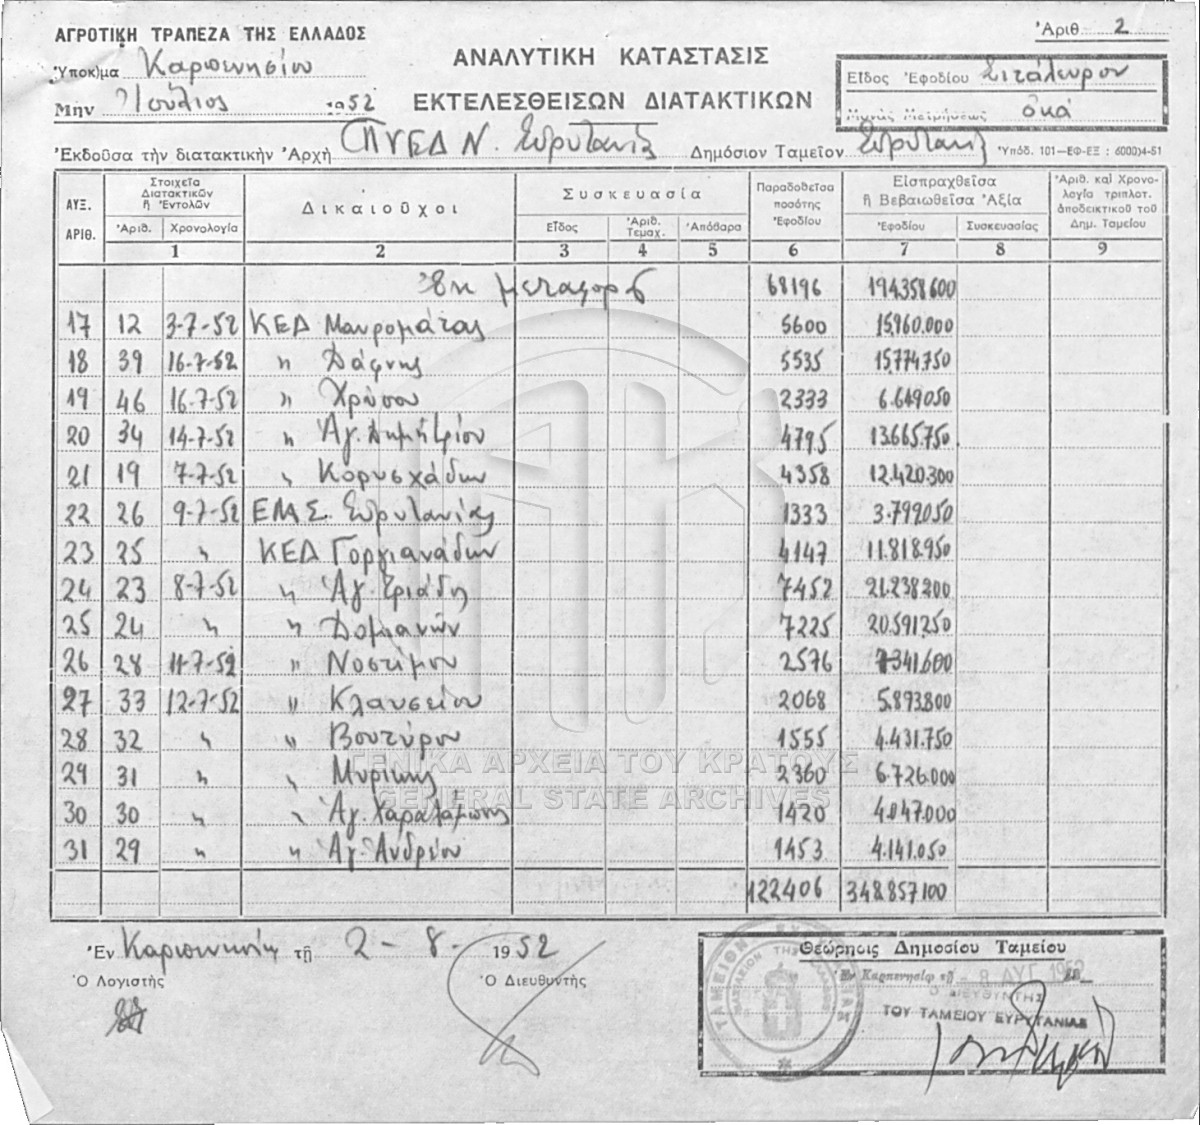 ΑΓΡΟΤΙΚΗ ΤΡΑΠΕΖΑ ΤΗΣ ΕΛΛΑΔΟΣ
Ὑποκ)μα Καρπενησίου
Μην Ἰούλιος 1952
ΑΝΑΛΥΤΙΚΗ ΚΑΤΑΣΤΑΣΙΣ
ΕΚΤΕΛΕΣΘΕΙΣΩΝ ΔΙΑΤΑΚΤΙΚΩΝ
Ἀριθ. 2
Εἶδος Ἐφοδίου Σιτάλευρον
Μονὰς Μετρήσεως ὀκά
Ἐκδοῦσα τὴν διατακτικὴν Ἀρχὴ ΠΥΕΔ Ν. Εὐρυτανίας Δημόσιον Ταμεῖον Εὐρυτανίας Ὑπόδ. 101-ΕΦ-ΕΞ : 6000)4-51
ΑΥΞ. ΑΡΙΘ. Στοιχεῖα Διατακτικῶν ἢ Ἐντολῶν Δικαιοῦχοι Συσκευασία Παραδοθεῖσα ποσότης Ἐφοδίου Εἰσπραχθεῖσα ἢ Βεβαιωθεῖσα Ἀξία Ἀριθ. καὶ Χρονολογία τριπλοτ. ἀποδεικτικοῦ τοῦ Δημ. Ταμείου
Ἀριθ. Χρονολογία Εἶδος Ἀριθ. Τεμαχ. Ἀπόβαρα Ἐφοδίου Συσκευασίας
1 2 3 4 5 6 7 8 9
Ἐκ μεταφορᾶς 68196 194358600
17 12 3-7-52 ΚΕΔ Μαυρομάτας 5600 15.960.000
18 39 16-7-52 " Δάφνης 5535 15.774.750
19 46 16-7-52 " Χρύσου 2333 6.649.050
20 34 14-7-52 " Ἁγ. Δημητρίου 4795 13.665.750
21 19 7-7-52 " Κορυσχάδων 4358 12.420.300
22 26 9-7-52 ΕΜΣ. Εὐρυτανίας 1333 3.799.050
23 25 " ΚΕΔ Γοργιανάδων 4147 11.818.950
24 23 8-7-52 " Ἁγ. Τριάδος 7452 21.238.200
25 24 " " Δομιανῶν 7225 20.591.250
26 28 11-7-52 " Νοστίμου 2576 7.341.600
27 33 12-7-52 " Κλαυσείου 2068 5.893.800
28 32 " " Βουτύρου 1555 4.431.750
29 31 " " Μυρίκης 2360 6.726.000
30 30 " " Ἁγ. Χαραλάμπους 1420 4.047.000
31 29 " " Ἁγ. Ἀνδρέου 1453 4.141.050
122406 348.857.100
ΓΕΝΙΚΑ ΑΡΧΕΙΑ ΤΟΥ ΚΡΑΤΟΥΣ
GENERAL STATE ARCHIVES
Ἐν Καρπενησίῳ τῇ 2-8- 1952
Ὁ Λογιστής
Ὁ Διευθυντής
Θεώρησις Δημοσίου Ταμείου
Ἐν Καρπενησίῳ τῇ - 8 ΑΥΓ. 1952
Ο ΔΙΕΥΘΥΝΤΗΣ
ΤΟΥ ΤΑΜΕΙΟΥ ΕΥΡΥΤΑΝΙΑΣ